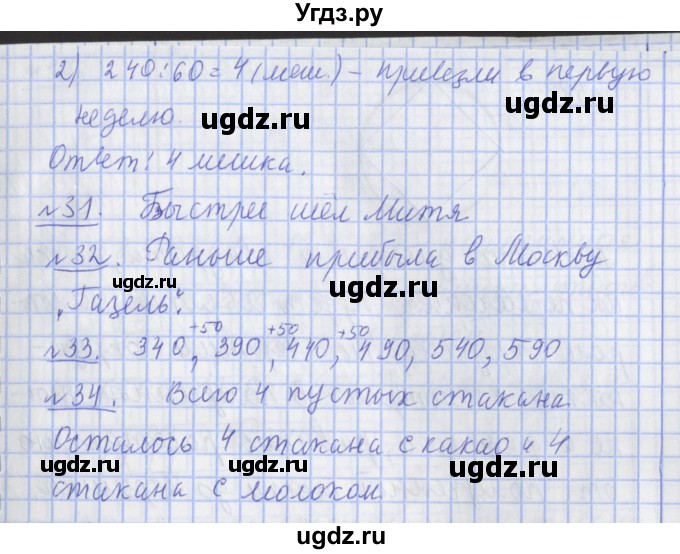 Угдз.ру
2) 240:60=4 (меш.) – привезли в первую
неделю.
ugdz.ru ugdz.ru
Ответ: 4 мешка.
№31. Быстрее шёл Митя
№32. Раньше прибыла в Москву
ugdz.ru ugdz.ru
„Газель“.
+50 +50 +50
№33. 340, 390, 440, 490, 540, 590
ugdz.ru ugdz.ru
№34. Всего 4 пустых стакана
Осталось 4 стакана с какао и 4
ugdz.ru ugdz.ru
стакана с молоком
ugdz.ru